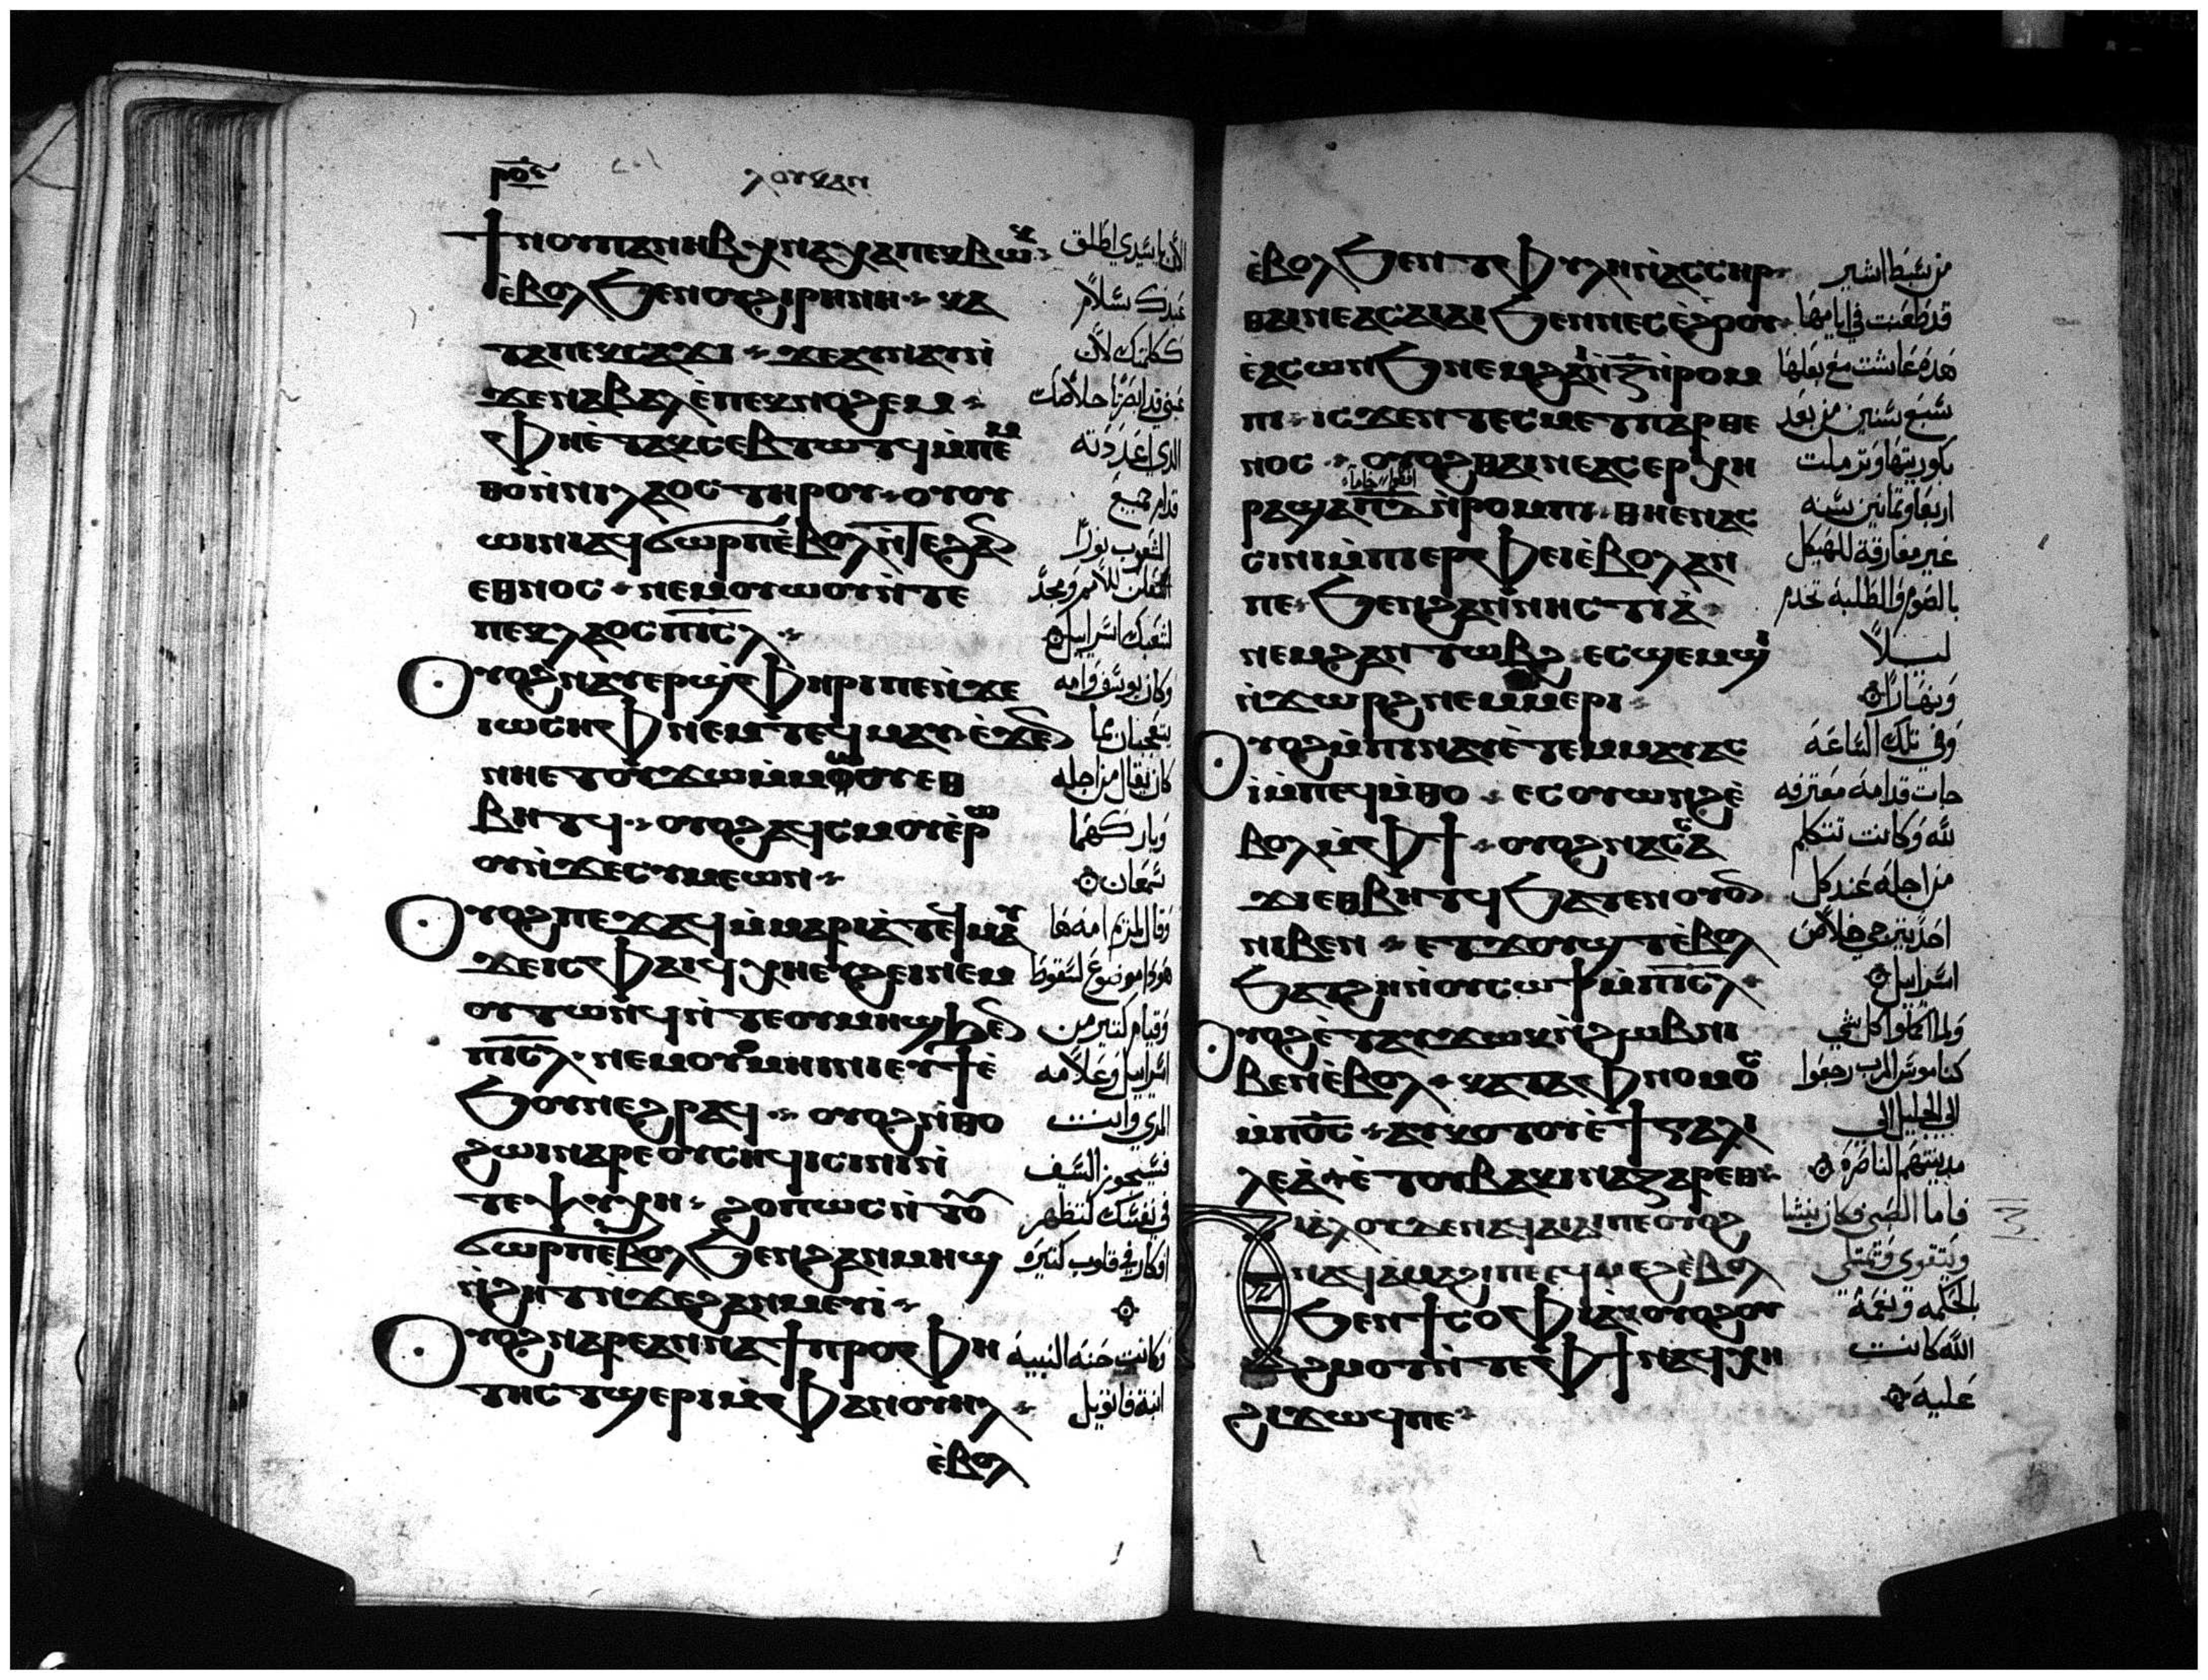 ⲣⲟⲋ
ⲗⲟⲩⲕⲁⲛ
ϯⲛⲟⲩⲡⲁⲛⲏⲃ ⲭⲛⲁⲭⲁⲡⲉⲕⲃⲱⲕ
ⲉ̀ⲃⲟⲗ ϧⲉⲛⲟⲩϩⲓⲣⲏⲛⲏ ⲕⲁ
ⲧⲁⲡⲉⲕⲥⲁϫⲓ ϫⲉⲁⲩⲛⲁⲩⲛ̀
ϫⲉⲛⲁⲃⲁⲗ ⲉ̀ⲡⲉⲕⲛⲟϩⲉⲙ
ⲫⲏⲉ̀ⲧⲁⲕⲥⲉⲃⲧⲱⲧϥ ⲙ̀ⲡⲉⲙ
ⲑⲟⲛ̀ⲛⲓⲗⲁⲟⲥ ⲧⲏⲣⲟⲩ ⲟⲩⲟⲩ
ⲱⲓⲛⲓⲁⲩϭⲱⲣⲡ ⲉ̀ⲃⲟⲗ ⲛ̀ⲧⲉϩⲁⲛ
ⲉⲑⲛⲟⲥ ⲛⲉⲙⲟⲩⲱⲟⲩ ⲛ̀ⲧⲉ
ⲡⲉⲕⲗⲁⲟⲥ ⲡⲓⲥⲗ
ⲟⲩⲟϩ ⲛⲁⲩⲉⲣϣⲫⲏⲣⲓ ⲡⲉ ⲛ̀ϫⲉ
ⲓⲱⲥⲏⲫ ⲛⲉⲙⲧⲉϥⲙⲁⲩ ⲉ̀ϫⲉⲛ
ⲛⲏⲉⲧⲟⲩϫⲱ ⲙ̀ⲙⲱⲟⲩ ⲉⲑ
ⲃⲏⲧϥ ⲟⲩⲟϩ ⲁϥⲥⲙⲟⲩ ⲉ̀ⲣⲱ
ⲟⲩ ⲛ̀ϫⲉⲥⲩⲙⲉⲱⲛ
ⲟⲩⲟϩ ⲡⲉϫⲁϥ ⲙ̀ⲙⲁⲣⲓⲁ ⲧⲉϥⲙⲁⲩ
ϫⲉⲓⲥ ⲫⲁⲓ ϥⲭⲏ ⲉⲩϩⲉⲓ ⲛⲉⲙ
ⲟⲩⲧⲱⲛϥ ⲛ̀ⲧⲉⲟⲩⲙⲏϣ ϧⲉⲛ
ⲡⲓⲥⲗ ⲛⲉⲙⲟⲩⲙⲏⲓⲛⲓ ⲉⲩϯ ⲉ̀
ϧⲟⲩⲛ ⲉϩⲣⲁϥ ⲟⲩⲟϩ ⲛ̀ⲑⲟ
ϩⲱⲓ ⲛⲁⲣⲉ ⲟⲩⲥⲏϥⲓ ⲥⲓⲛⲓ ⲛ̀
ⲧⲉⲯⲩⲭⲏ ϩⲟⲡⲱⲥ ⲛ̀ⲧⲟⲩ
ϭⲱⲣⲡ ⲉ̀ⲃⲟⲗ ϧⲉⲛϩⲁⲛⲙⲏϣ
ⲛ̀ϩⲏⲧ ⲛ̀ϫⲉϩⲁⲛⲙⲉⲩⲓ
ⲟⲩⲟϩ ⲛⲁⲣⲉⲁⲛⲛⲁ ϯⲡⲣⲟⲫⲏ
ⲧⲏⲥ ⲧϣⲉⲣⲓ ⲙ̀ⲫⲁⲛⲟⲩⲏⲗ
ⲉ̀ⲃⲟⲗ
الان يا سيدي اطلق
عبدك بسلام
ككلمتك لان
عيني قد ابصرتا خلاصك
الذي اعددته
قدام جميع
الشعوب نورًا
استعلن للامم ومجدًا
لشعبك اسراييل
وكان يوسف وامه
يتعجبان مما
كان يقال من اجله
وباركهما
سمعان
وقال لمريم امه ها
هودا موضوع لسقوط
وقيام كتيرين من
اسراييل وعلامه
المري وانت
فسيجوز السيف
في نفسك لتظهر
افكار في قلوب كتيره
وكانت حنه النبيه
ابنة فانويل
ⲉ̀ⲃⲟⲗ ϧⲉⲛⲧⲫⲩⲗⲏ ⲛ̀ⲁⲥⲥⲏⲣ
ⲑⲁⲓ ⲛⲉⲁⲥⲁⲓⲁⲓ ϧⲉⲛⲛⲉⲥⲉ̀ϩⲟⲟⲩ
ⲉ̀ⲁⲥⲱⲛϧ ⲛⲉⲙϩⲁⲓ ⲛ̀ⲍ̅ ⲛ̀ⲣⲟⲙ
ⲡⲓ ⲓⲥϫⲉⲛ ⲧⲉⲥⲙⲉⲧⲡⲁⲣⲑⲉ
ⲛⲟⲥ ⲟⲩⲟϩ ⲑⲁⲓ ⲛⲉⲁⲥⲉⲣⲭⲏ
ⲣⲁ ϣⲁⲡⲇ̅ ⲛ̀ⲣⲟⲙⲡⲓ ⲑⲏⲉⲛⲁⲥ
ⲥⲓⲛⲓ ⲙ̀ⲡⲓⲉⲣⲫⲉⲓ ⲉ̀ⲃⲟⲗ ⲁⲛ
ⲡⲉ ϧⲉⲛϩⲁⲛⲛⲏⲥⲧⲓⲁ
ⲛⲉⲙϩⲁⲛⲧⲱⲃϩ ⲉⲥϣⲉⲙϣⲓ
ⲛ̀ϫⲱⲣϩ ⲛⲉⲙⲙⲉⲣⲓ
ⲟⲩⲟϩ ⲙ̀ⲡⲓⲛⲁⲩ ⲉ̀ⲧⲉⲙⲙⲁⲩ ⲁⲥ
ⲓ̀ ⲙ̀ⲡⲉϥⲙ̀ⲑⲟ ⲉⲥⲟⲩⲱⲛϩ ⲉ̀
ⲃⲟⲗ ⲙ̀ⲫϯ ⲟⲩⲟϩ ⲛⲁⲥⲥⲁ
ϫⲓ ⲉⲑⲃⲏⲧϥ ϧⲁⲧⲉⲛⲟⲩⲟⲛ
ⲛⲓⲃⲉⲛ ⲉⲧϫⲟⲩϣⲧ ⲉ̀ⲃⲟⲗ
ϧⲁⲧϩⲏ ⲛ̀ⲟⲩⲥⲱϯ ⲙ̀ⲡⲓⲥⲗ
ⲟⲩⲟϩ ⲉ̀ⲧⲁⲩϫⲱⲕ ⲛ̀ϩⲱⲃ ⲛⲓ
ⲃⲉⲛ ⲉ̀ⲃⲟⲗ ⲕⲁⲧⲁ ⲫⲛⲟⲙⲟⲥ
ⲙ̀ⲡⲟⲥ ⲁⲩⲕⲟⲧⲟⲩ ⲉ̀ϯⲅⲁⲗⲓ
ⲗⲉⲁ ⲉ̀ⲧⲟⲩⲃⲁⲕⲓ ⲛⲁⲍⲁⲣⲉⲑ
ⲡⲓⲁ̀ⲗⲟⲩ ⲇⲉ ⲛⲁϥⲁⲓⲁⲓ ⲡⲉ ⲟⲩⲟϩ
ⲛⲁϥⲁ̀ⲙⲁϩⲓ ⲡⲉ ⲉϥⲙⲉϩ ⲉ̀ⲃⲟⲗ
ϧⲉⲛϯⲥⲟⲫⲓⲁ ⲟⲩⲟϩ ⲟⲩ
ϩⲙⲟⲧ ⲛ̀ⲧⲉⲫϯ ⲛⲁϥⲭⲏ
ϩⲓϫⲱϥ ⲡⲉ
من سبط اشير
قد طعنت في ايامها
هده عاشت مع بعلها
سبع سنين من بعد
بكوريتها وترملت
اربعا وتمانين سنه
غير مفارقة للهيكل
بالصوم والطلبة تخدم
ليلاً
ونهارًا
وفي تلك الساعه
جات قدامه معترفه
لله وكانت تتكلم
من اجله عند كل
احد يترجي خلاص
اسراييل
ولما اكملوا كل شي
كناموس الرب رجعوا
الي الجليل الي
مدينتهم الناصره
فاما الصبي فكان ينشا
ويتقوي ويمتلي
بالحكمه ونعمة
الله كانت
عليه